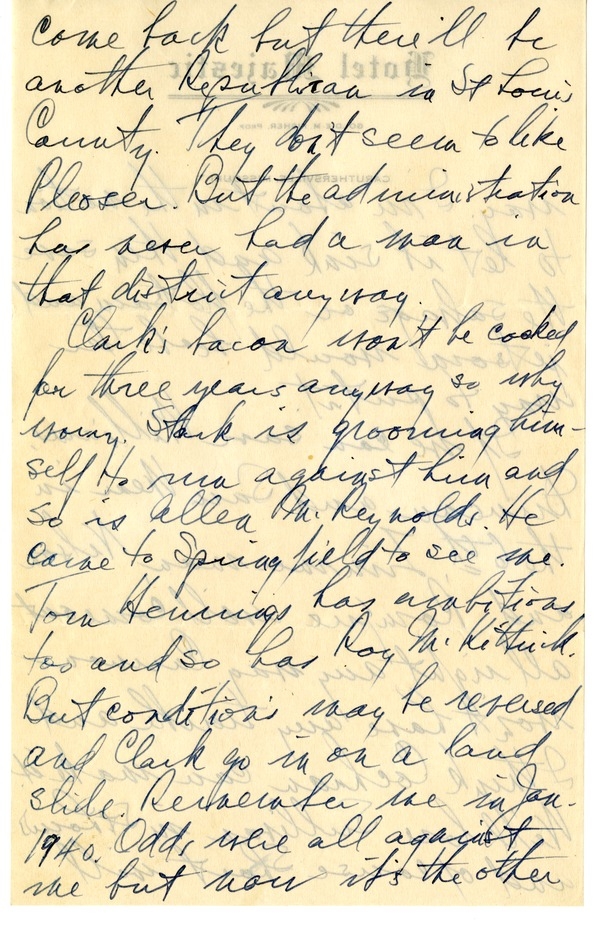 come back but there'll be
another Republican in St Louis
County. They don't seem to like
Ploeser. But the administration
has never had a man in
that district anyway.
Clark's bacon won't be cooked
for three years anyway so why
worry. Stark is grooming him-
self to run against him and
so is Allen McReynolds. He
came to Springfield to see me.
Tom Hennings has ambitions
too and so has Roy McKittrick.
But conditions may be reversed
and Clark go in on a land
slide. Remember me in Jan.
1940. Odds were all against
me but now it's the other
Hotel Majestic